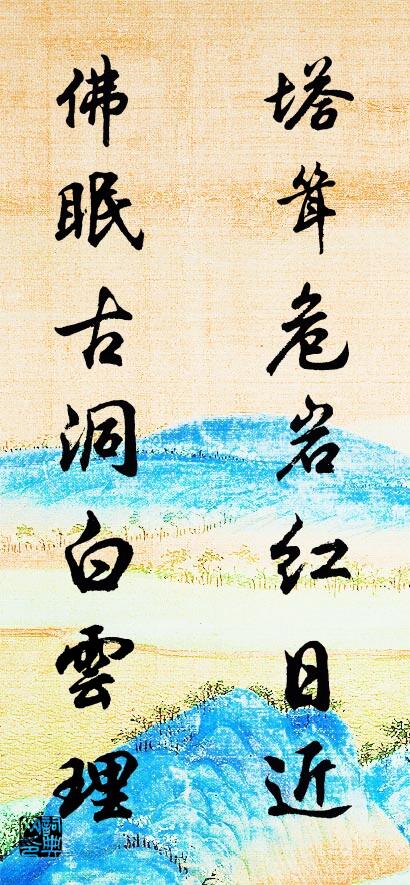 塔耸危岩红日近
佛眠古洞白雲理